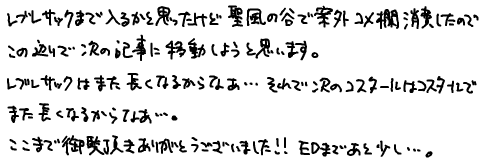 レブレサックまで入るかと思ったけど聖風の谷で案外コメ欄消費したので
この辺りで次の記事に移動しようと思います。
レブレサックはまた長くなるからなぁ…それで次のコスタールはコスタールで
また長くなるからなぁ…。
ここまで御覧頂きありがとうございました!!EDまであと少し…。